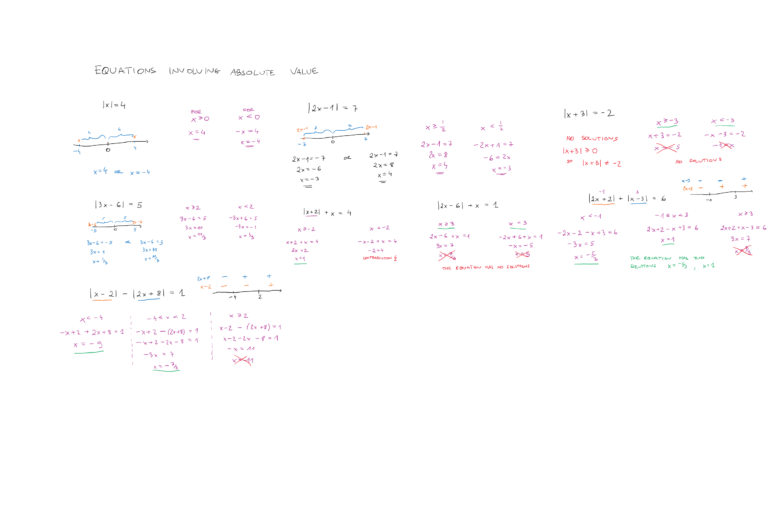 EQUATIONS INVOLVING ABSOLUTE VALUE
|x|=4
FOR
x≥0
x=4
FOR
x<0
-x=4
x=-4
x=4 or x=-4
|2x-1| = 7
2x-1=-7 or 2x-1=7
2x=-6 2x=8
x=-3 x=4
x≥1/2 x<1/2
2x-1=7 -2x+1=7
2x=8 -6=2x
x=4 x=-3
|x+3| = -2
NO SOLUTIONS
|x+3| ≥ 0
so |x+3| ≠ -2
x≥-3 x<-3
x+3=-2 -x-3=-2
NO SOLUTIONS
|3x-6| = 5
3x-6=-5 or 3x-6=5
3x=1 3x=11
x=1/3 x=11/3
x≥2 x<2
3x-6=5 -3x+6=5
3x=11 -3x=-1
x=11/3 x=1/3
|x+2| + x = 4
x≥-2 x<-2
x+2+x=4 -x-2+x=4
2x=2 -2=4
x=1
|2x-6| + x = 1
x≥3 x<3
2x-6+x=1 -2x+6+x=1
3x=7 -x=-5
THE EQUATION HAS NO SOLUTIONS
|2x+2| + |x-3| = 6
x<-1 -1≤x<3 x≥3
-2x-2-x+3=6 2x+2-x+3=6 2x+2+x-3=6
-3x=5 x=1 3x=7
x=-5/3
THE EQUATION HAS TWO
SOLUTIONS x=-5/3, x=1
|x-2| - |2x+8| = 1
2x+8 - + +
x-2 - - +
-4 2
x<-4 -4≤x<2 x≥2
-x+2+2x+8=1 -x+2-(2x+8)=1 x-2-(2x+8)=1
x=-9 -x+2-2x-8=1 x-2-2x-8=1
-3x=7 -x=11
x=-7/3